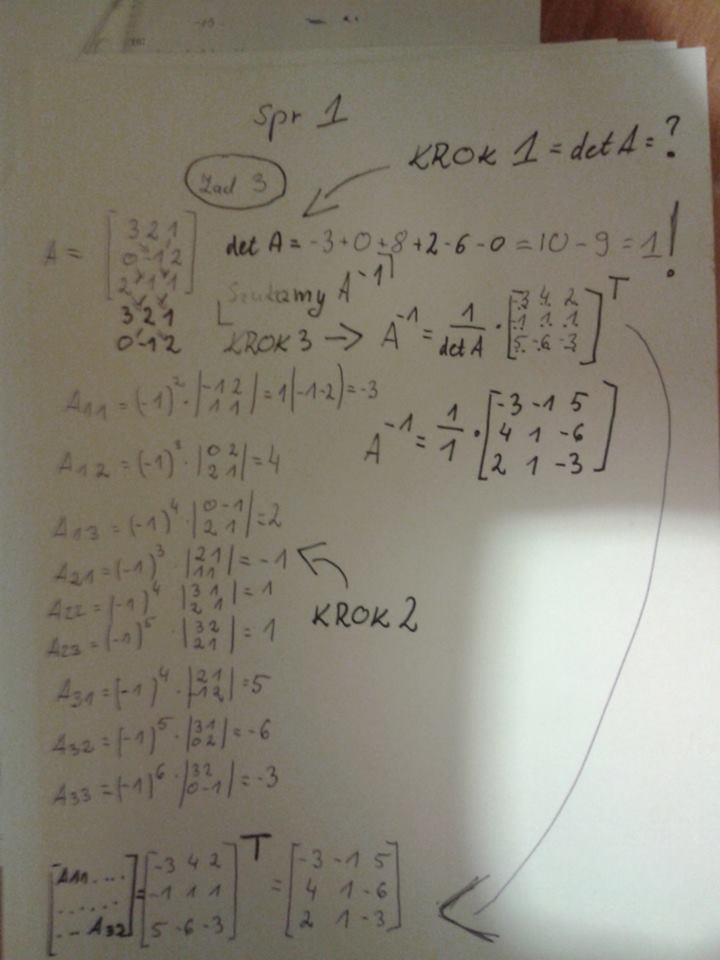 Spr 1
KROK 1 = det A = ?
Zad 3
A = [3 2 1
0 -1 2
2 1 1]
3 2 1
0 -1 2
det A = -3+0+8+2-6-0 = 10-9 = 1!
Szukamy A^-1
KROK 3 → A^-1 = 1/det A · [-3 4 2
-1 1 1
5 -6 -3]^T
A^-1 = 1/1 · [-3 -1 5
4 1 -6
2 1 -3]
A11 = (-1)^2 · |-1 2
1 1| = 1(-1-2) = -3
A12 = (-1)^3 · |0 2
2 1| = 4
A13 = (-1)^4 · |0 -1
2 1| = 2
A21 = (-1)^3 · |2 1
1 1| = -1
KROK 2
A22 = (-1)^4 |3 1
2 1| = 1
A23 = (-1)^5 · |3 2
2 1| = 1
A31 = (-1)^4 · |2 1
-1 2| = 5
A32 = (-1)^5 · |3 1
0 2| = -6
A33 = (-1)^6 · |3 2
0 -1| = -3
[A11 ....
......
.. A32] = [-3 4 2
-1 1 1
5 -6 -3]^T = [-3 -1 5
4 1 -6
2 1 -3]